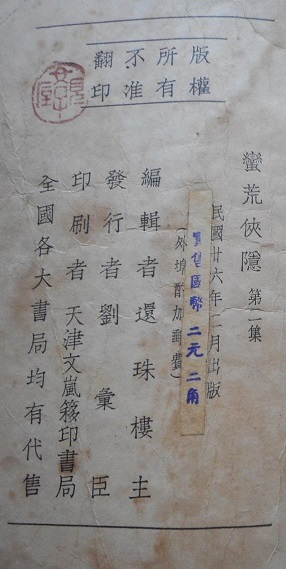 版權
所有
不准
翻印
蠻荒俠隱 第二集
民國廿六年二月出版
幣二元二角
(外埠酌加郵費)
編輯者還珠樓主
發行者劉彙臣
印刷者天津文嵐簃印書局
全國各大書局均有代售